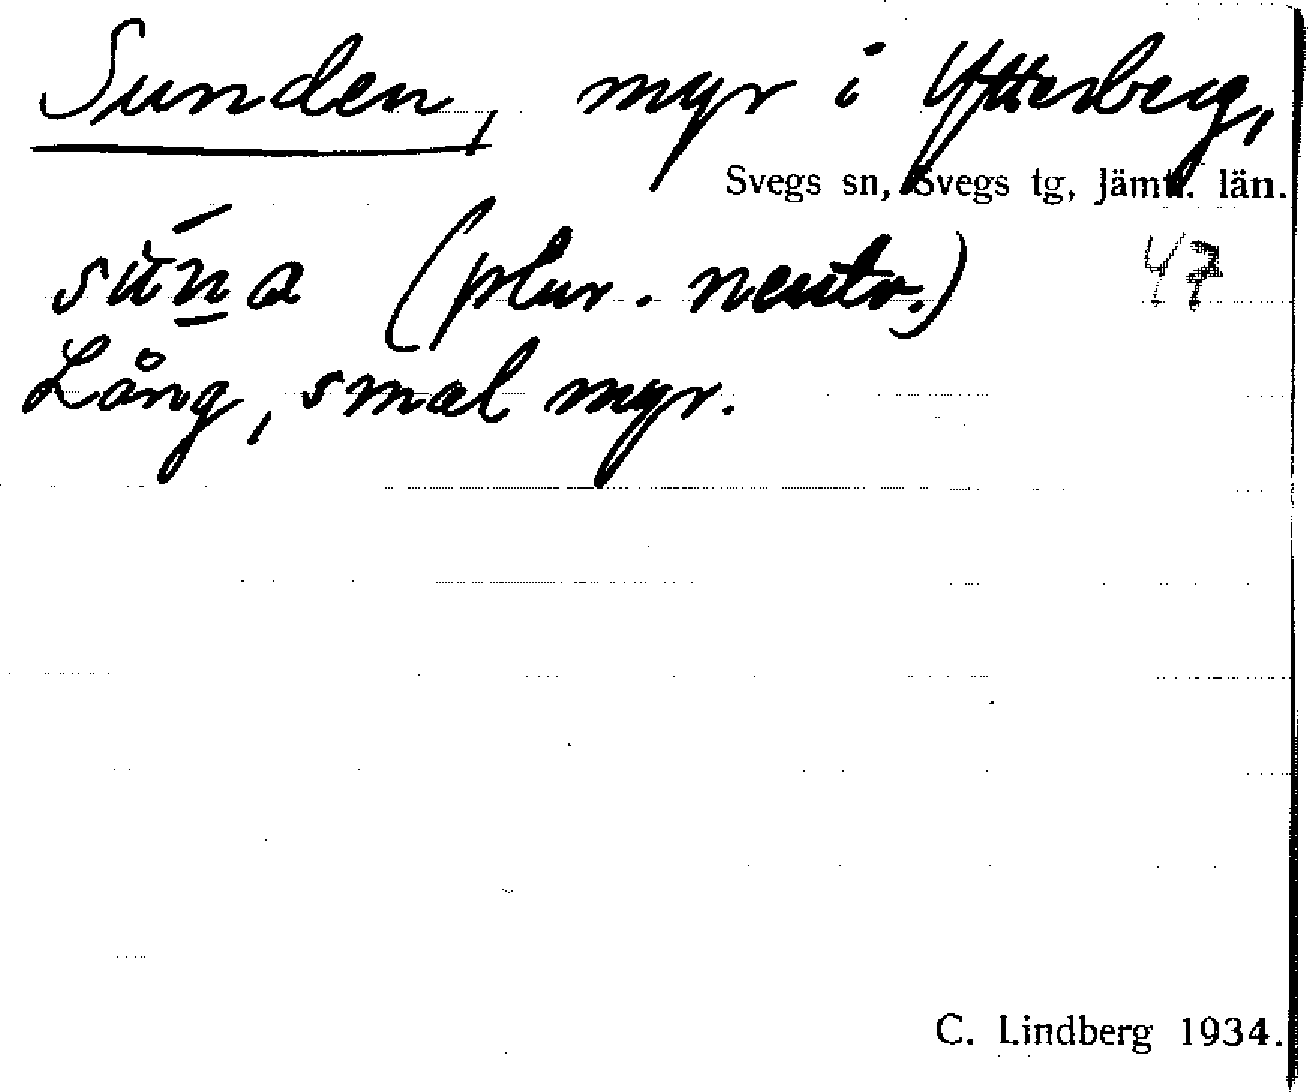 Sunden, myr i Ytterberg,
Svegs sn, Svegs tg, Jämtl. län.
sùn̲a (plur. neutr.) 47
Lång, smal myr.
C. Lindberg 1934.